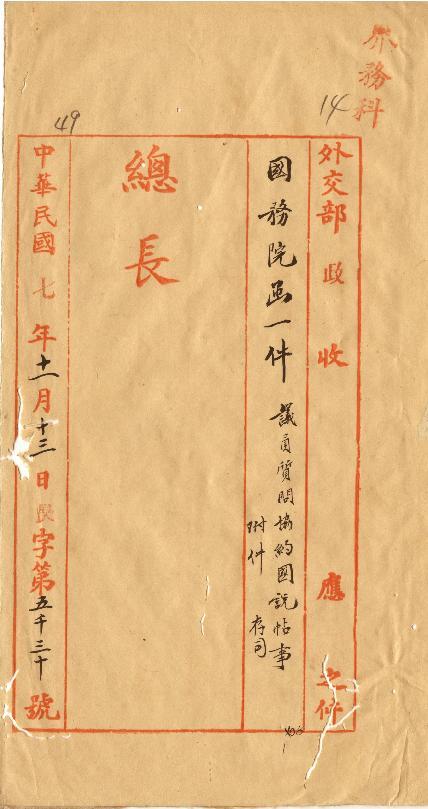 界務科
14
49
外交部政收 應 之件
國務院函一件 議員質問協約國說帖事
附件 存司
總長
中華民國七年十一月十三日 字第五千三十號